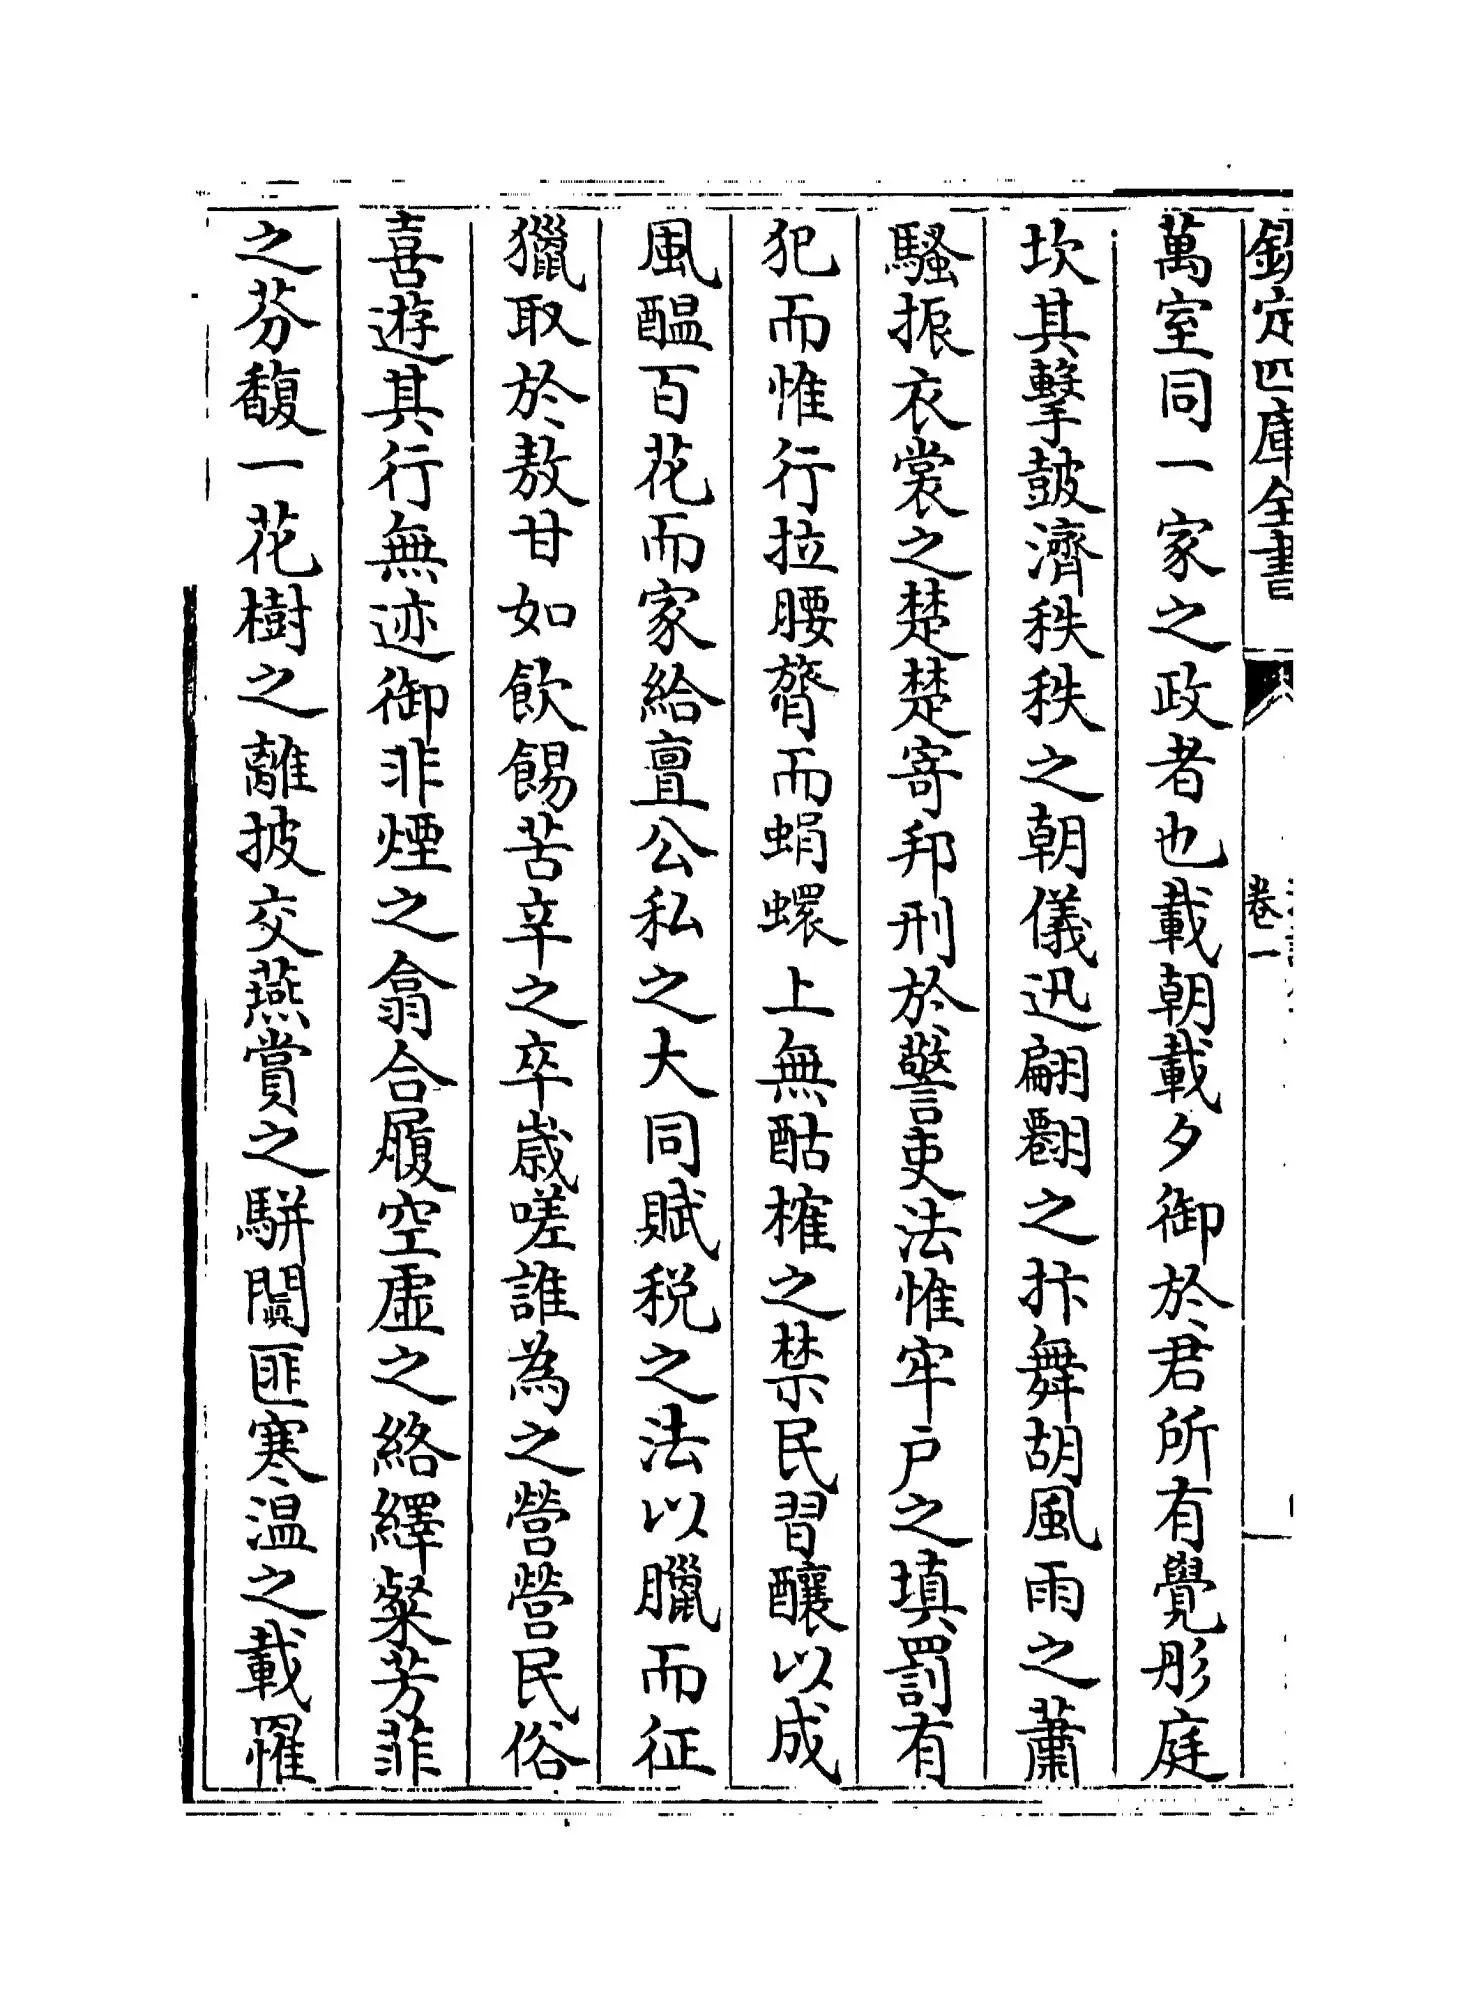 欽定四庫全書
卷一
萬室同一家之政者也載朝載夕御於君所有覺彤庭
坎其擊鼓濟秩秩之朝儀迅翩翻之抃舞胡風雨之蕭
騷振衣裳之楚楚寄邦刑於警吏法惟牢戶之填罰有
犯而惟行拉腰膂而蜎蠉上無酤榷之禁民習釀以成
風醖百花而家給亶公私之大同賦税之法以臘而征
獵取於敖甘如飲餳苦辛之卒歲嗟誰為之營營民俗
喜遊其行無迹御非煙之翕合履空虛之絡繹粲芳菲
之芬馥一花樹之離披交燕賞之駢闐匪寒温之載罹